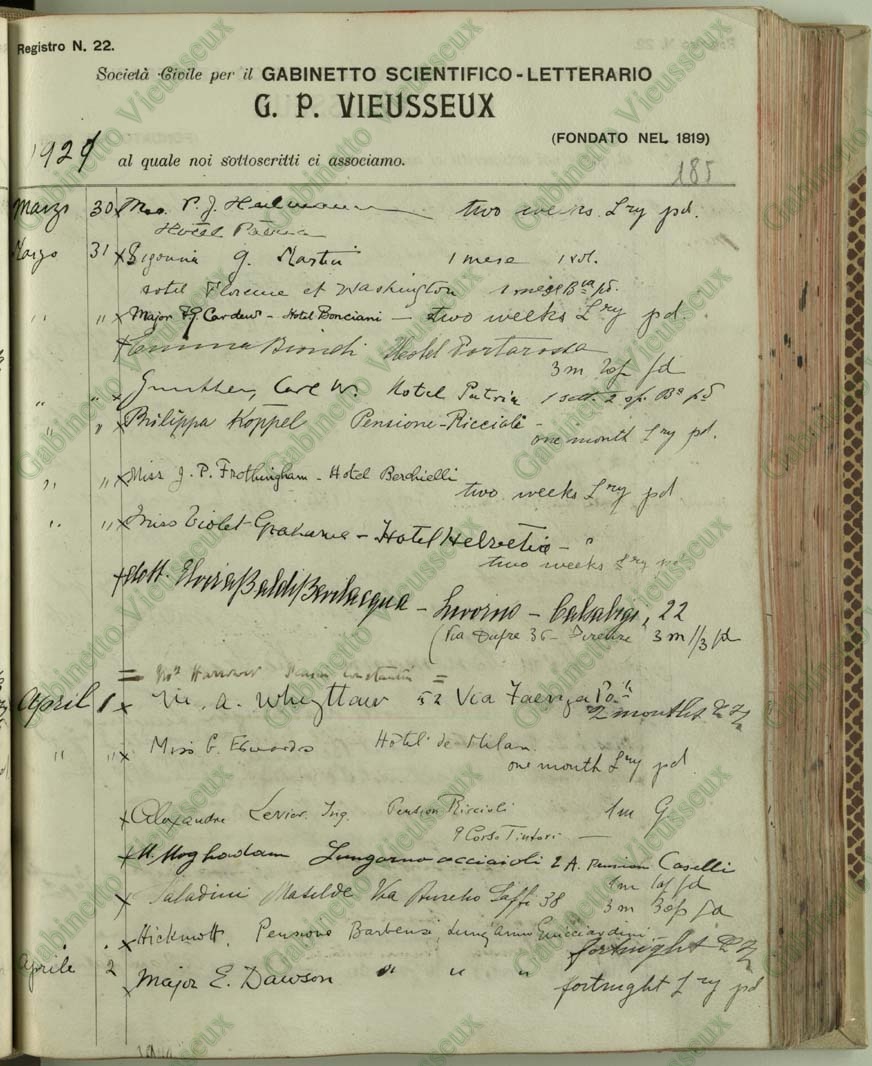 Registro N. 22.
Società Civile per il GABINETTO SCIENTIFICO-LETTERARIO
G. P. VIEUSSEUX
(FONDATO NEL 1819)
al quale noi sottoscritti ci associamo.
185
Marzo 30 x Mrs. P. J. two weeks Lry pd.
Hotel
Marzo 31 x Signorina G. Martin 1 mese 1 vol.
Hotel Florence et Washington 1 mese pd.
" " x Major Cardew - Hotel Bonciani - two weeks Lry pd.
x Emma Biondi Hostel Portarossa
3 m 2 op pd
" " x Gunther, Carl W. Hotel Patria 1 sett. 2 op. Ba pd
" " x Philippa Koppel Pensione Riccioli -
one month Lry pd.
" " x Miss J. P. Frothingham - Hotel Berchielli
two weeks Lry pd
" " x Miss Violet Grahame - Hotel Helvetia - "
two weeks Lry
x Dott. Elvira Baldi Bevilacqua - Livorno - 22
(Via Dupre 36 - Firenze 3 m 1/3 pd
= =
April 1 x A. 52 Via Faenza
2 months
" " x Miss E. Edwards Hôtel de Milan.
one month Lry pd
x Alexandre Levier. Ing. Pension Riccioli 1 m G
9 Corso Tintori
x M. Moghadam Lungarno acciaioli 2 A. Pension Caselli
1m 1 op pd
x Saladini Matilde Via Aurelio Saffi 38
3 m 3 op pd
x Hickmott, Pensione Barbensi, Lungarno Guicciardini
fortnight
Aprile 2 x Major E. Dawson " " "
fortnight Lry pd